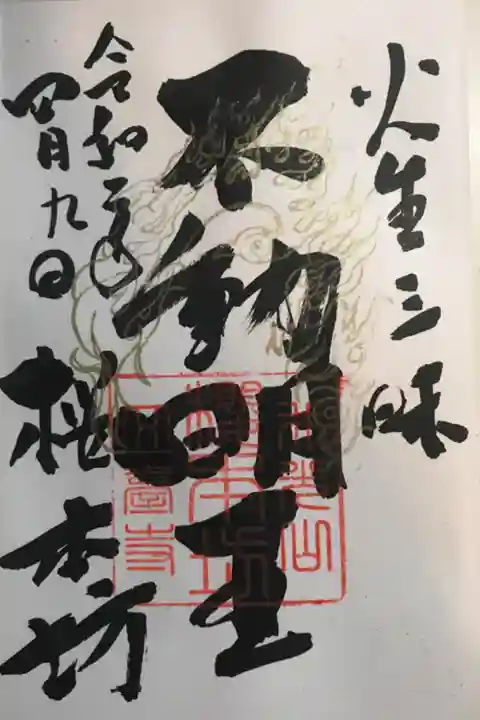 火生三昧
不動明王
令和二年
四月九日
桜本坊
櫻本坊